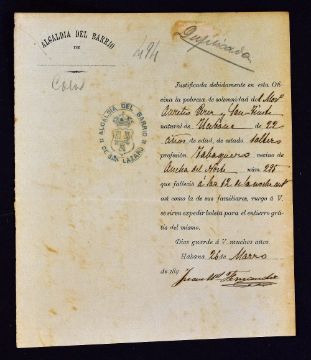 ALCALDIA DEL BARRIO
DE
494
ALCALDIA DEL BARRIO
DE SAN LAZARO
Justificada debidamente en esta Ofi-
cina la pobreza de solemnidad del
Aurelio Perez y
natural de Habana de 22
años de edad, de estado soltero
profesión Tabaquero vecino de
Ancha del Norte núm. 295
que falleció á las 12 de la noche
así como la de sus familiares, ruego á V.
se sirva expedir boleta para el entierro grá-
tis del mismo.
Dios guarde á V. muchos años.
Habana 26 de Marzo
de 189
Juan Fernandez